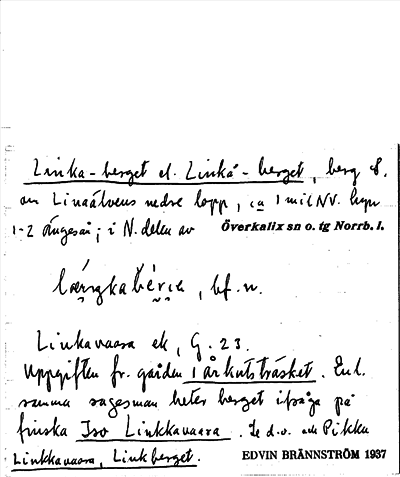 Linka-berget el. Linkå-berget, berg S.
om Linaälvens nedre lopp, ca 1 mil NV. byn
1-2 Ängeså; i N. delen av Överkalix sn o. tg Norrb. l.
bf. n.
Linkavaara ek, G. 23.
Uppgiften fr. gården i Årkutsträsket. Enl.
samma sagesman heter berget ifråga på
finska Iso Linkkavaara. Se d.o. och Pikku
Linkkavaara, Linkberget. EDVIN BRÄNNSTRÖM 1937